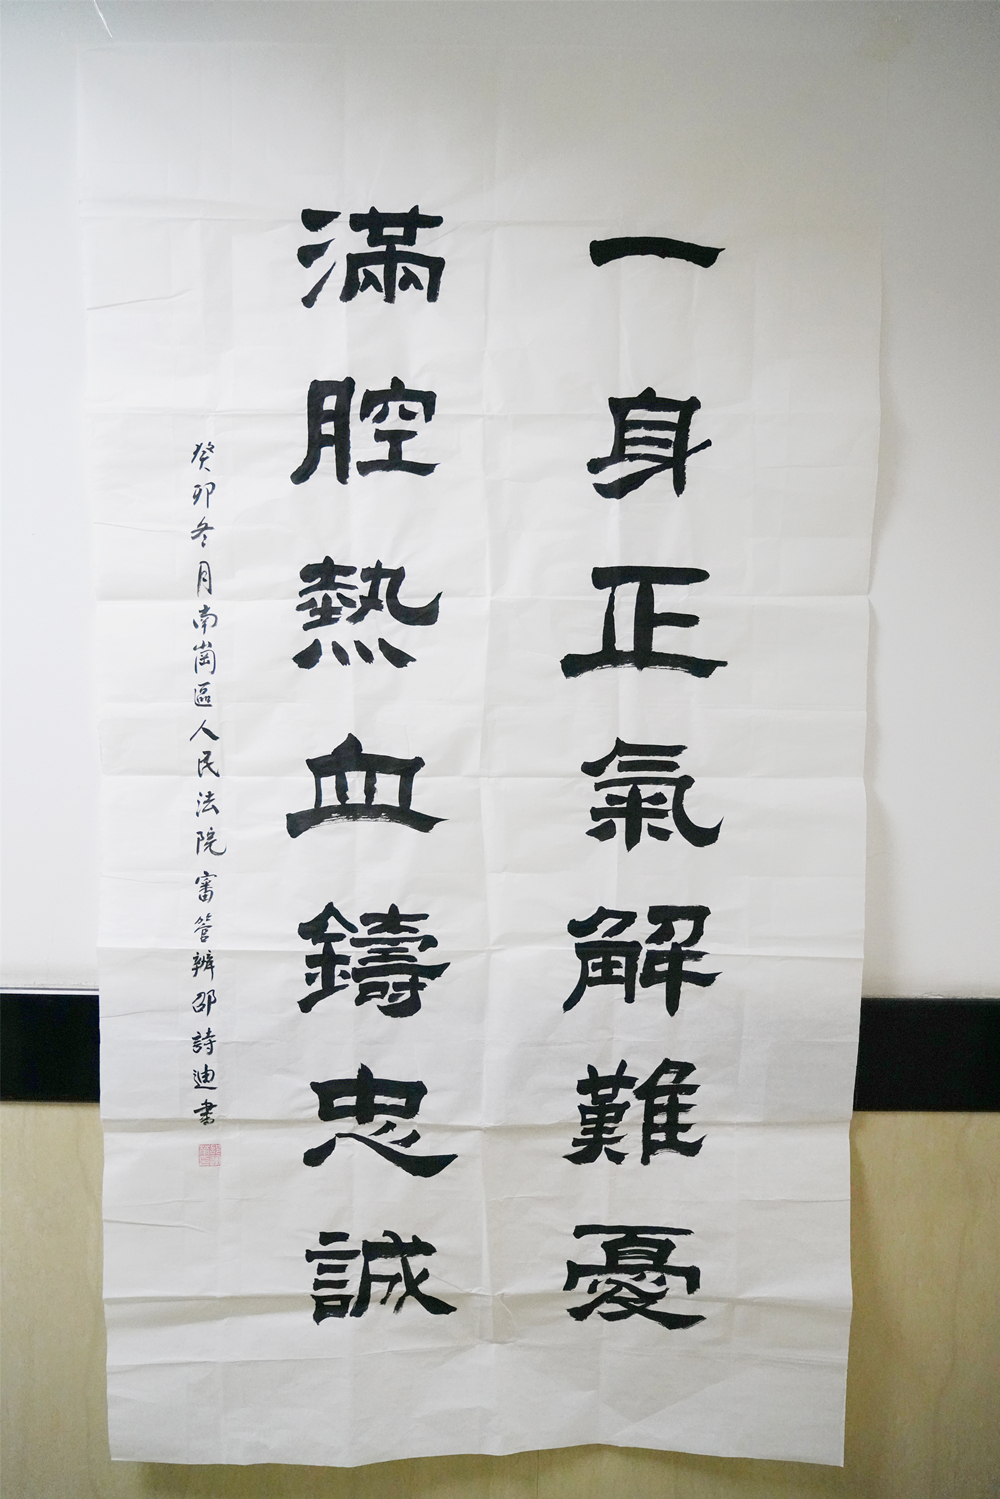 一身正氣解難憂
滿腔熱血鑄忠誠
癸卯冬月南崗區人民法院審管辦邵詩迪書